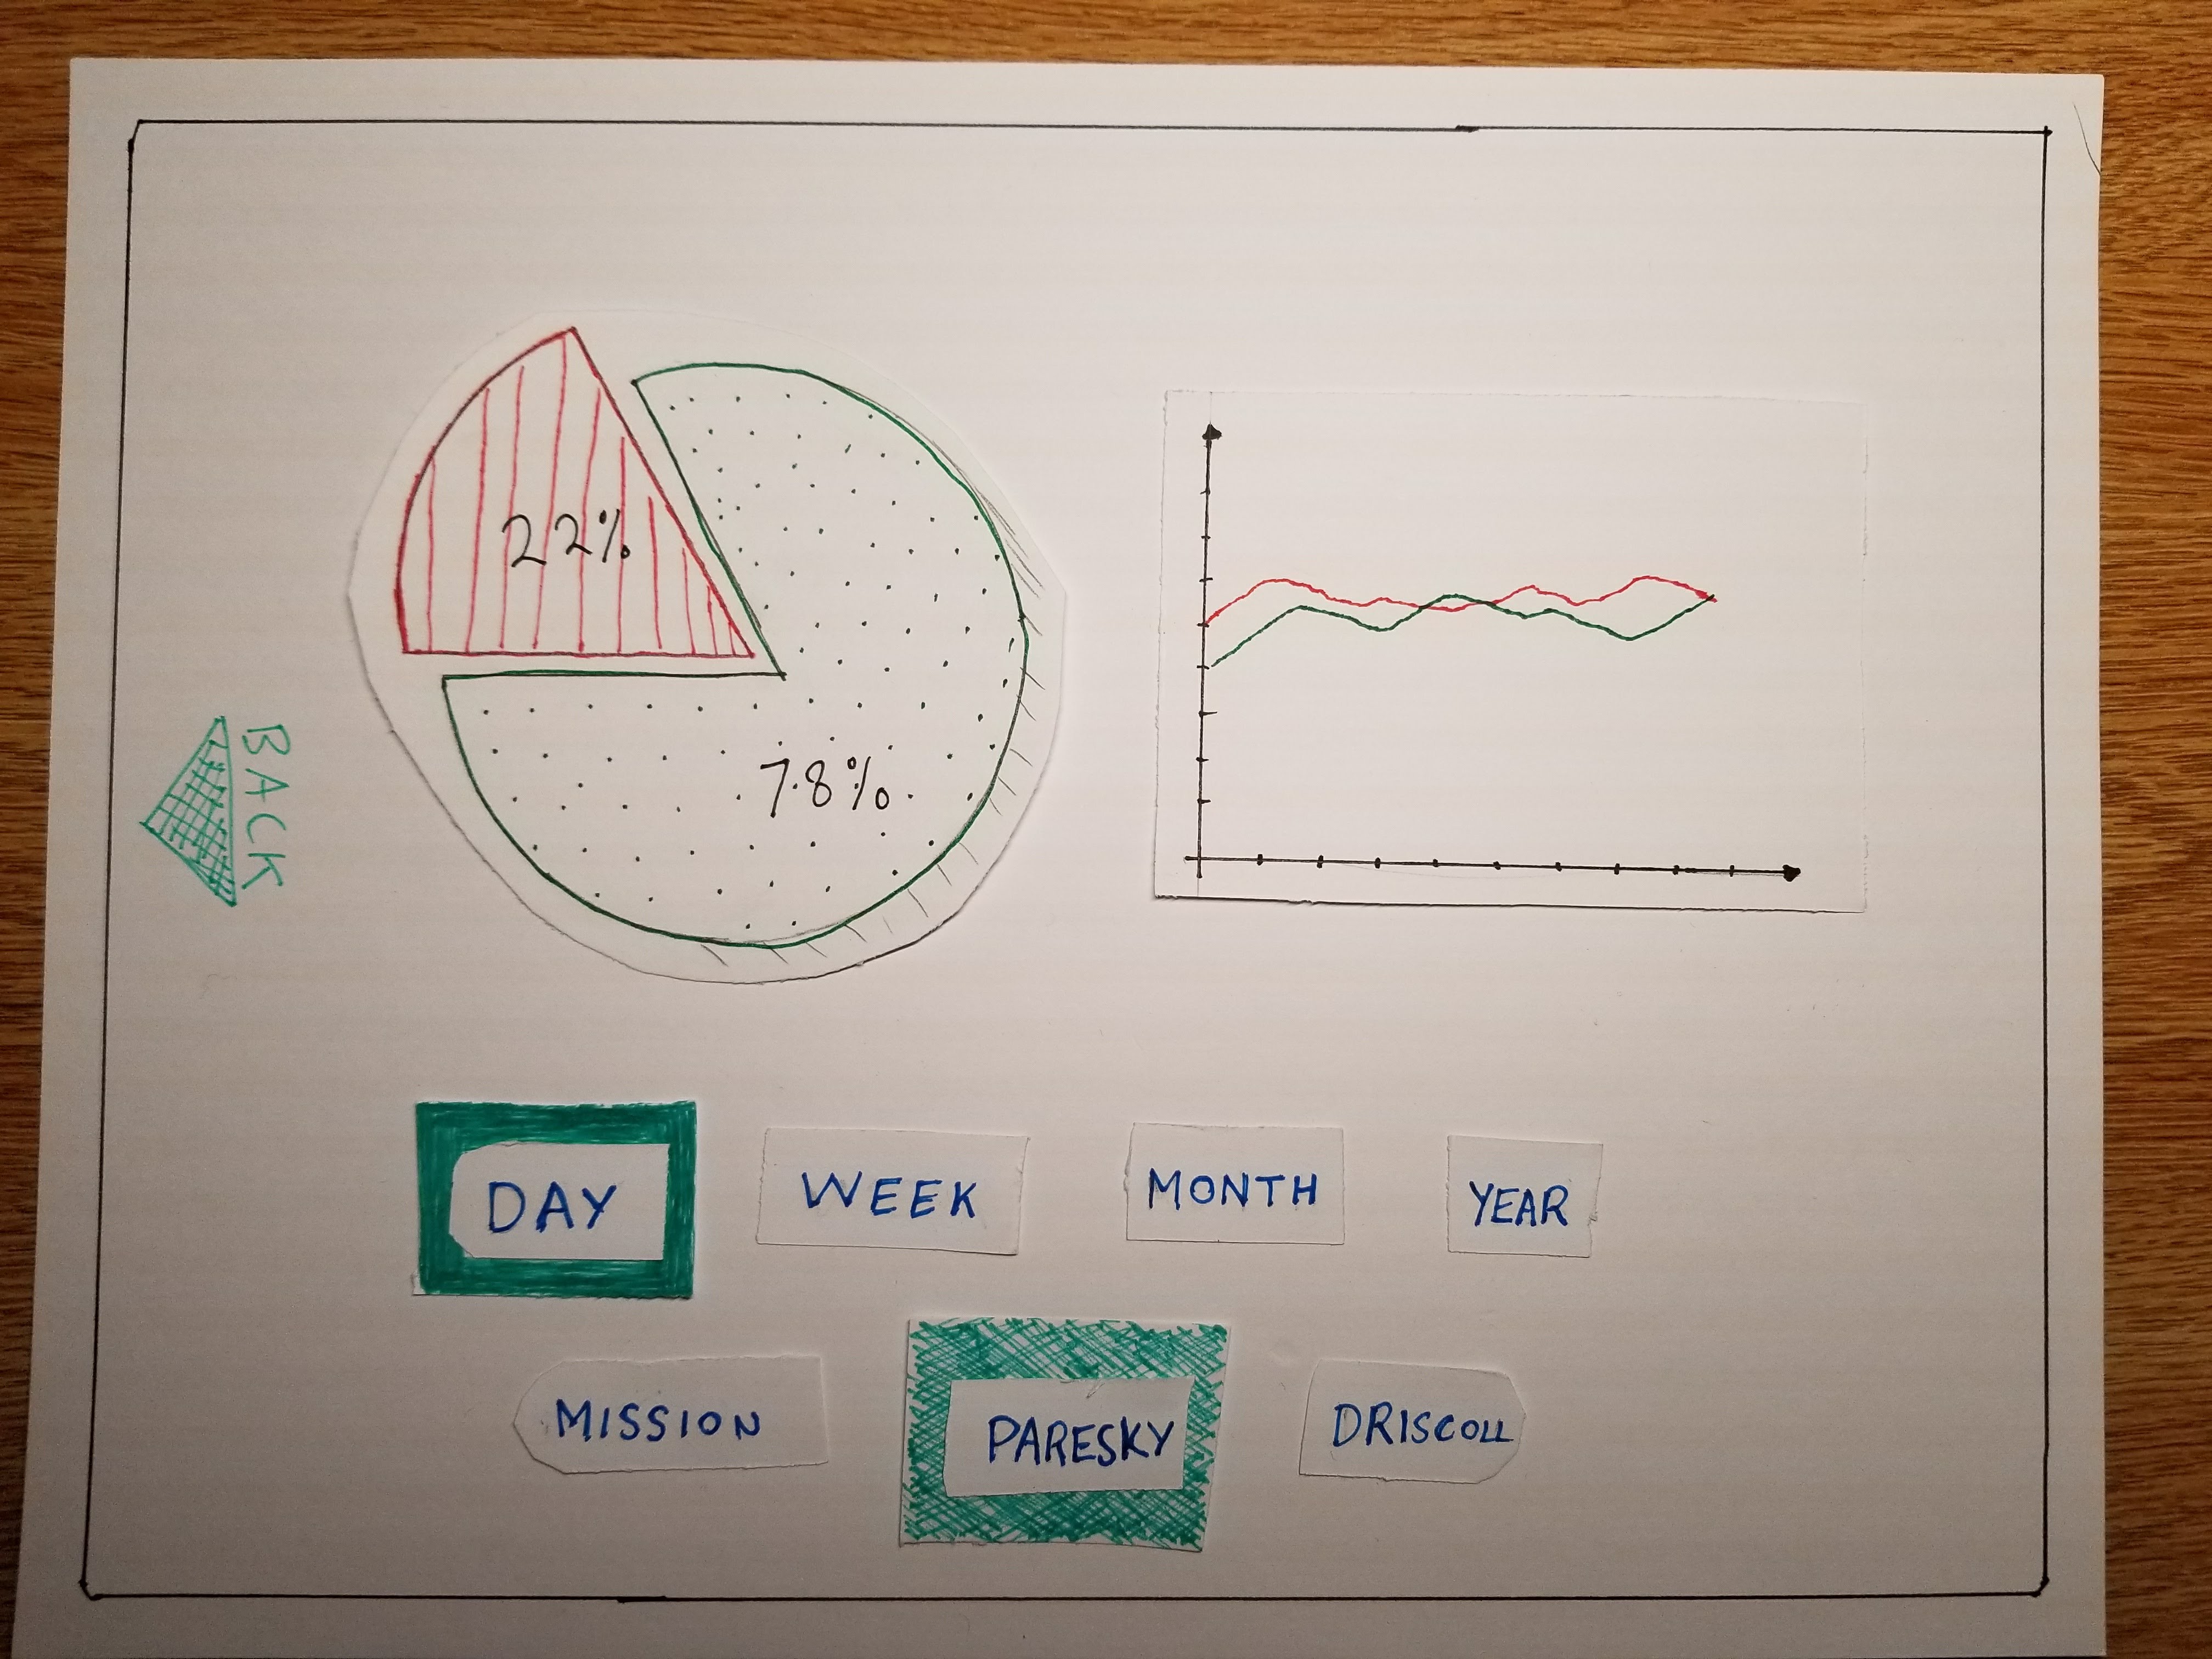 22%
78%
BACK
DAY WEEK MONTH YEAR
MISSION PARESKY DRISCOLL